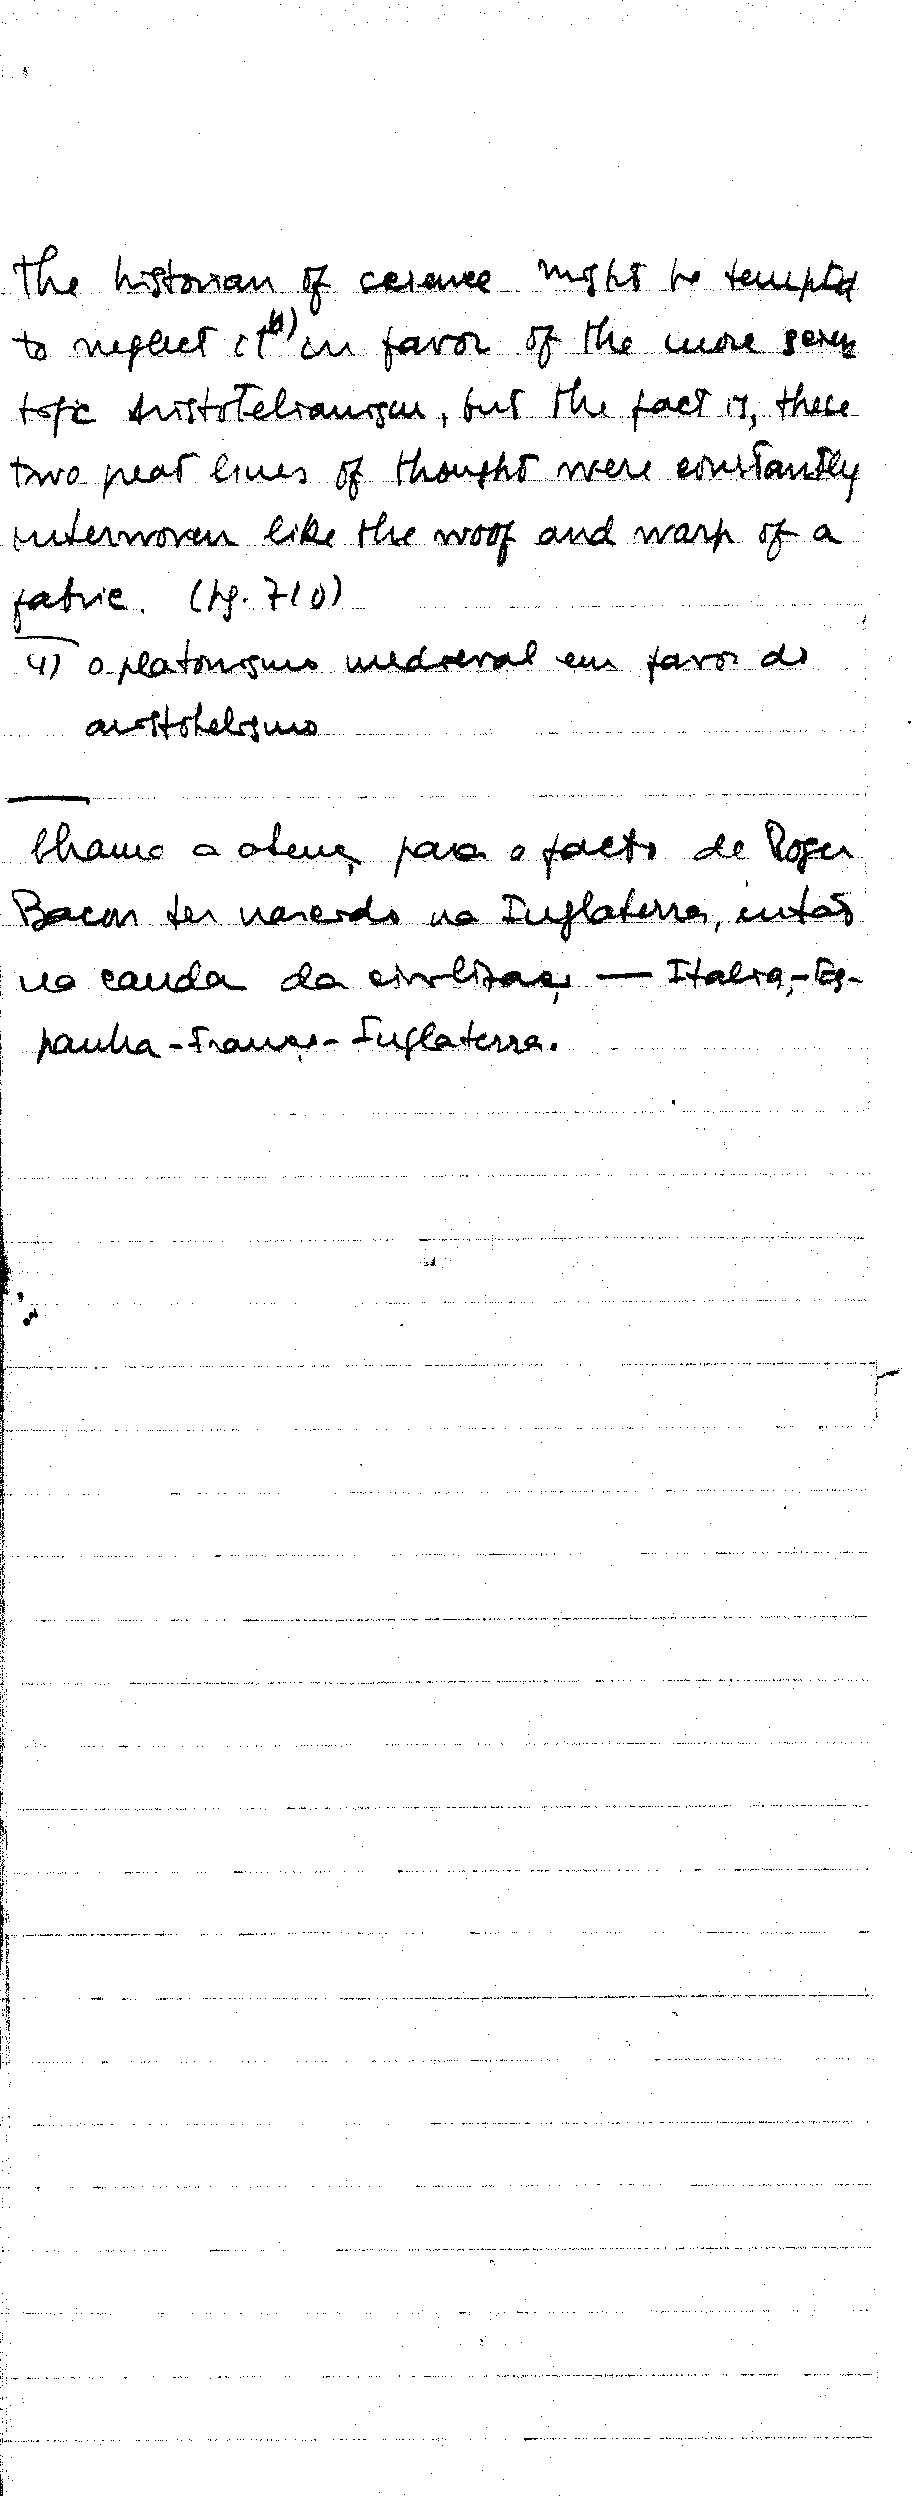 The historian of science might be tempted
to neglect it 4) in favor of the more scien
tific Aristotelianism, but the fact is, these
two great lines of thought were constantly
interwoven like the woof and warp of a
fabric. (pg. 710)
4) o platonismo medieval em favor do
aristotelismo
Chamo a atenç para o facto de Roger
Bacon ter nascido na Inglaterra, então
na cauda da civilizaç — Italia,-Es-
panha-França-Inglaterra.